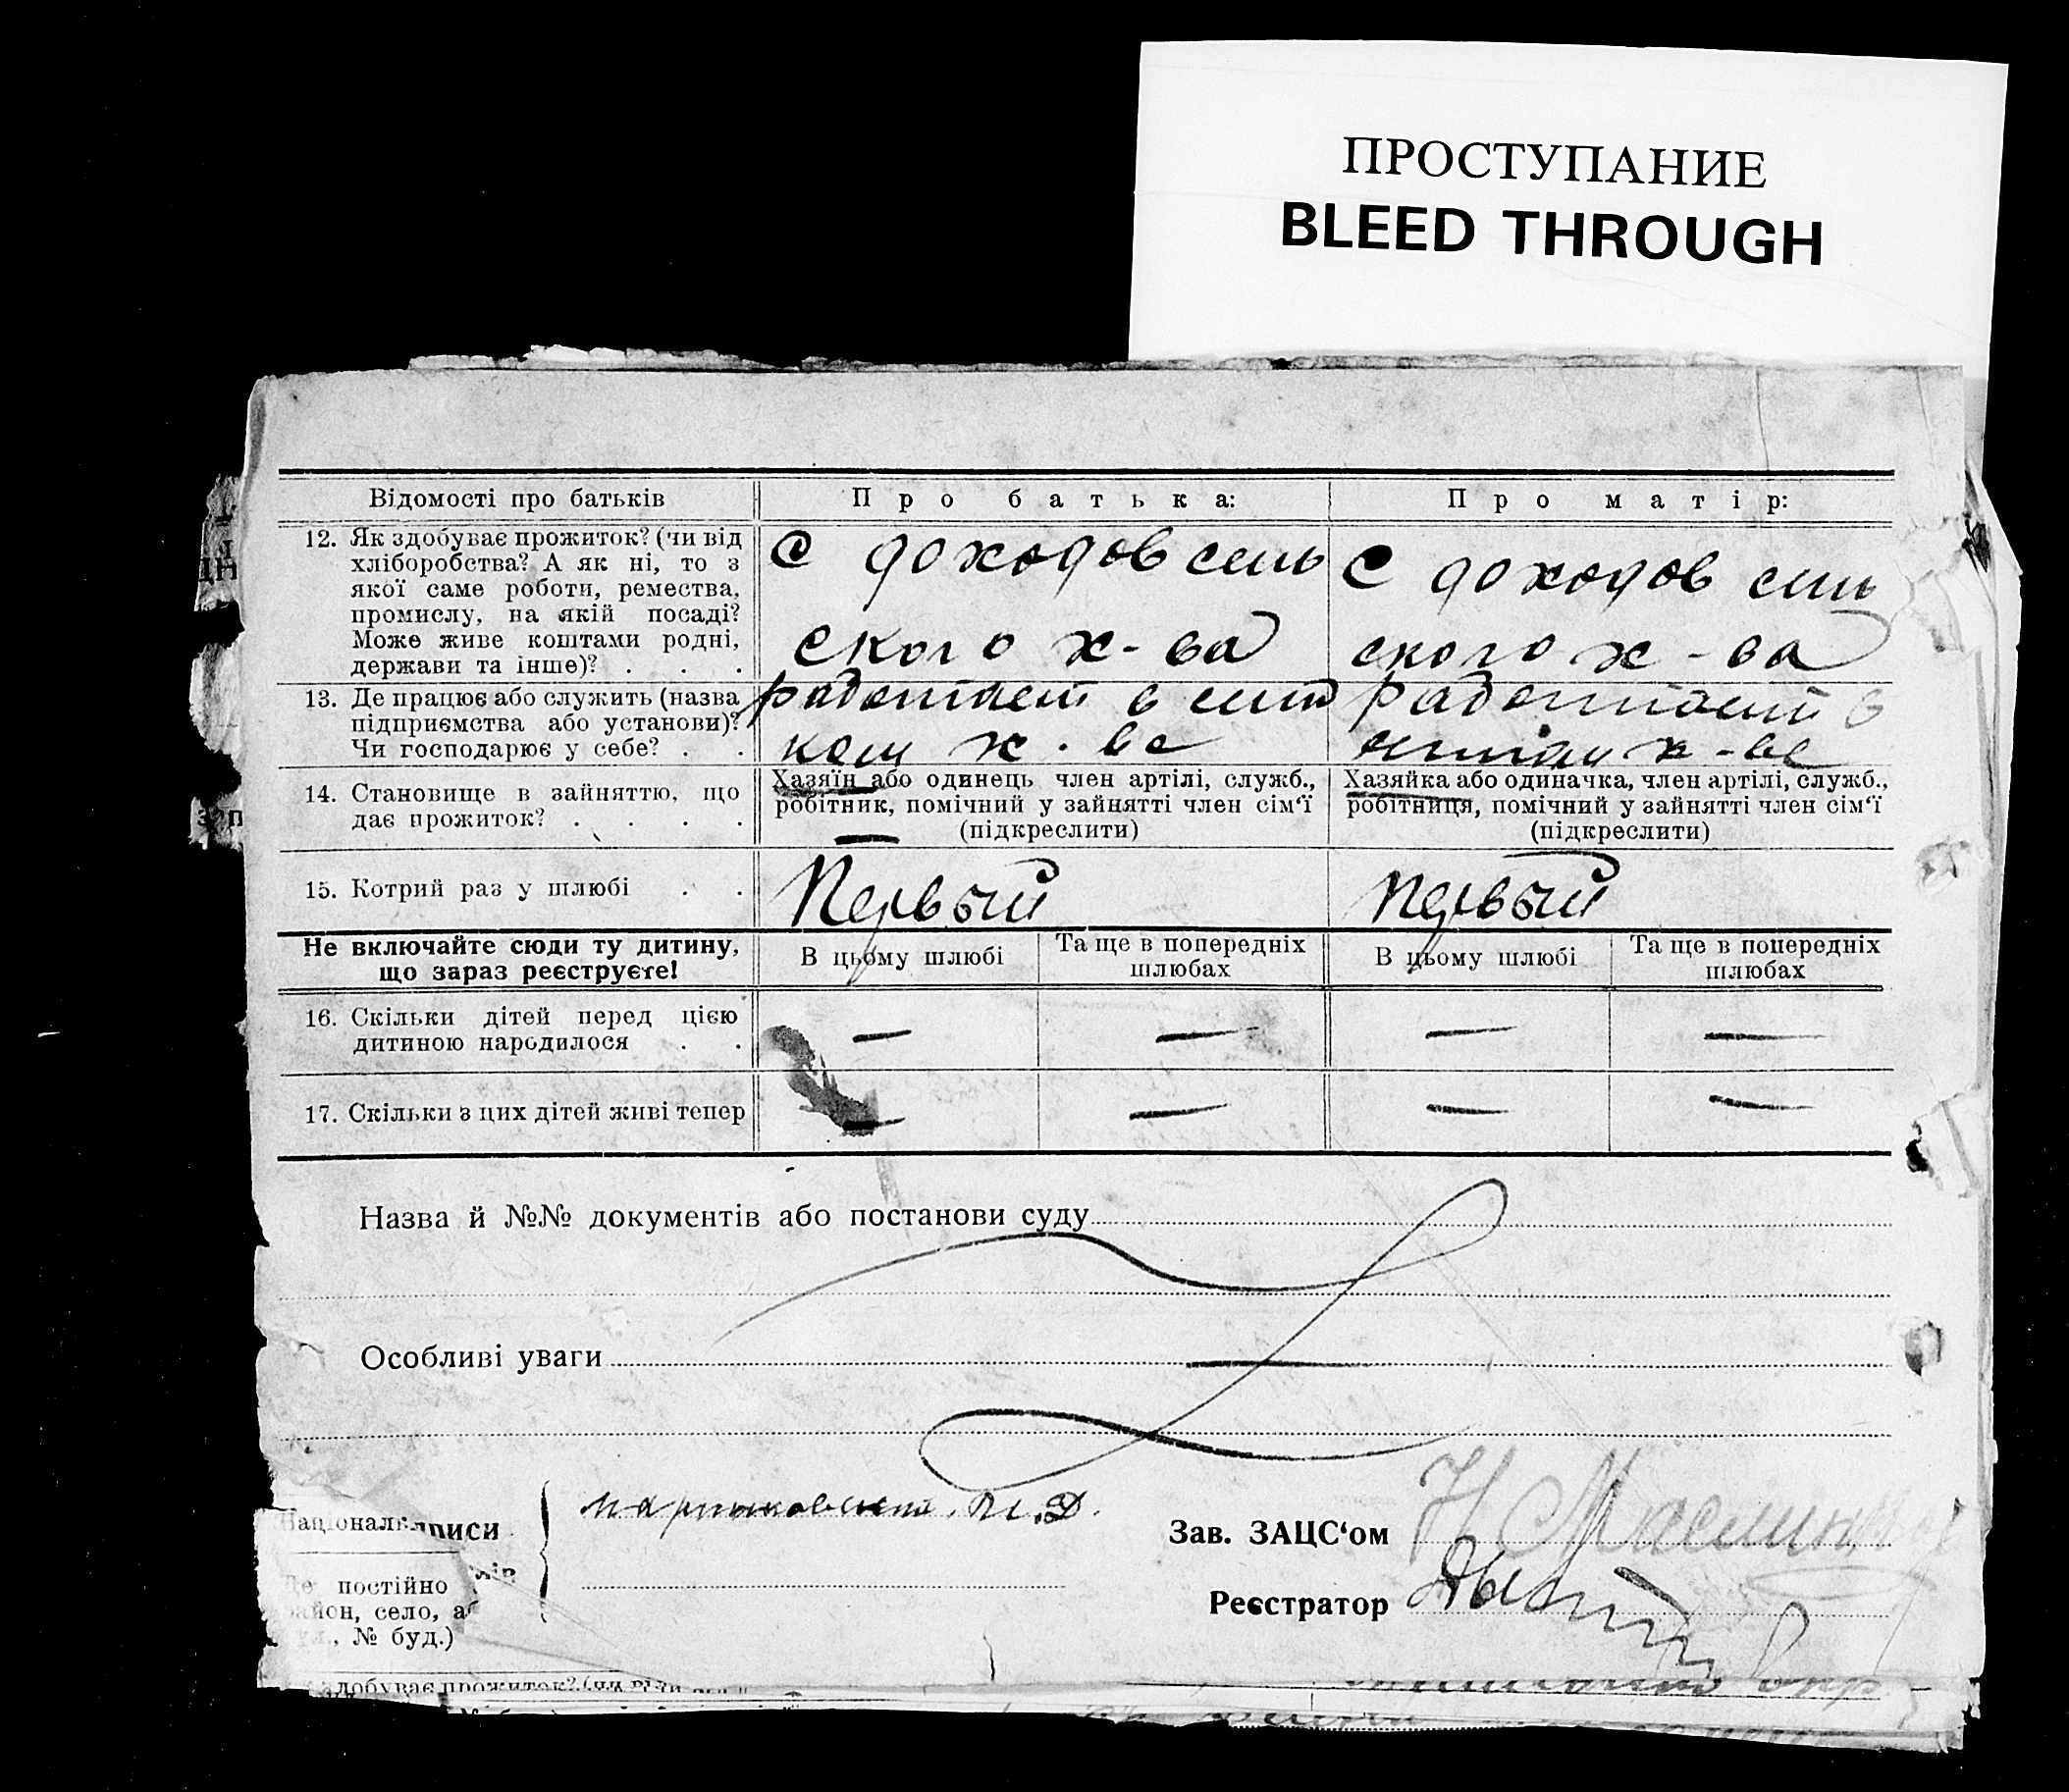 ПРОСТУПАНИЕ
BLEED THROUGH
Відомості про батьків
Про батька:
Про матір:
12. Як здобуває прожиток? (чи від
хліборобства? А як ні, то з
якої саме роботи, ремества,
промислу, на якій посаді?
Може живе коштами родні,
держави та інше)? . . .
С доходов сель
ского х-ва
С доходов сель
ского х-ва
13. Де працює або служить (назва
підприємства або установи)?
Чи господарює у себе? . .
работает в сель
ком х-ве
работает в
х-ве
14. Становище в зайняттю, що
дає прожиток? . . . .
Хазяїн або одинець член артілі, служб.,
робітник, помічний у зайнятті член сім‘ї
(підкреслити)
Хазяйка або одиначка, член артілі, служб.,
робітниця, помічний у зайнятті член сім‘ї
(підкреслити)
15. Котрий раз у шлюбі . .
Первый
Первый
Не включайте сюди ту дитину,
що зараз реєструєте!
В цьому шлюбі
Та ще в попередніх
шлюбах
В цьому шлюбі
Та ще в попередніх
шлюбах
16. Скільки дітей перед цією
дитиною народилося . .
—
—
—
—
17. Скільки з цих дітей живі тепер
—
—
—
—
Назва й №№ документів або постанови суду
Особливі уваги
—
Націонал
писи
Де постійно
район, село, а
, № буд.)
Зав. ЗАЦС‘ом
Реєстратор
добуває прожиток? (чи від